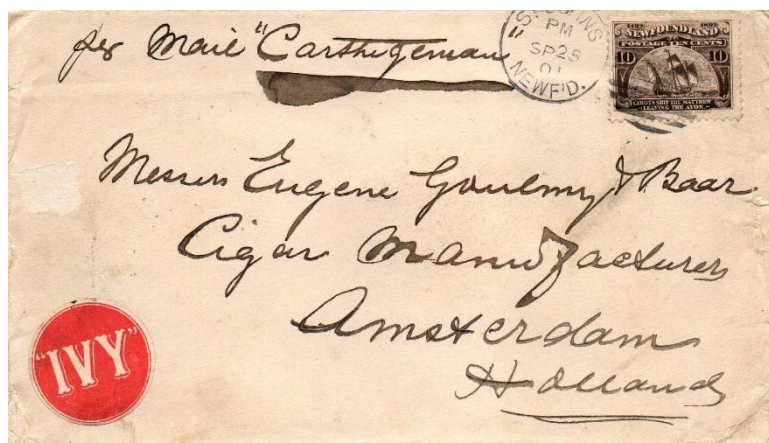 per Mail "Carthigenian"
S. JOHN'S
PM
SP 25
01
NEWF'D.
1497 1897
NEWFOUNDLAND
POSTAGE TEN CENTS
10 10
CABOT'S SHIP THE MATTHEW
LEAVING THE AVON.
Messers Eugene Goulmy & Baar
Cigar Manufacturers
Amsterdam
Holland
"IVY"